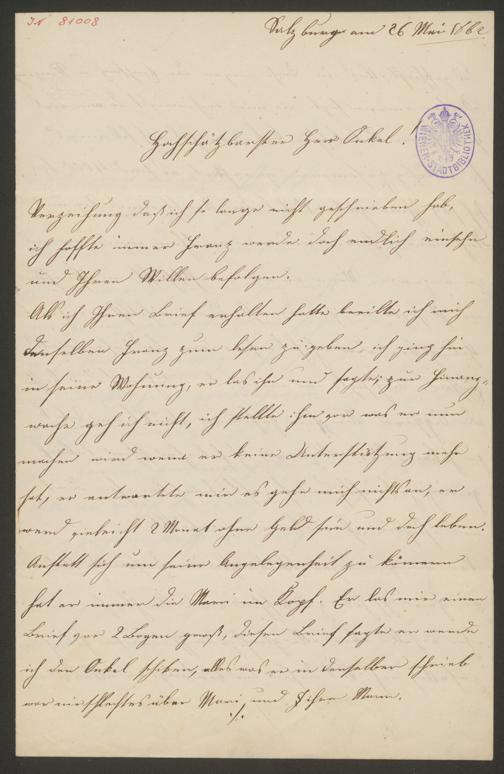 I.N 81008
Salzburg am 26 Mai 1882
WIENER STADTBIBLIOTHEK
Hochschätzbarster Herr Onkel!
Verzeihung daß ich so lange nicht geschrieben hab,
ich hoffte immer Franz werde doch endlich einsehn
und Ihren Willen befolgen.
Als ich Ihren Brief erhalten hatte beeilte ich mich
denselben Franz zum lesen zu geben, ich ging hin
in seine Wohnung, er las ihn und sagte; zur Finanz-
wache geh ich nicht, ich stellte ihm vor was er nun
machen wird wenn er keine Unterstützung mehr
hat, er antwortete mir es gehe mich nichts an, er
werd vieleicht 2 Monat ohne Geld sein und doch leben.
Anstatt sich um seine Angelegenheit zu kümern
hat er immer die Marie im Kopf. Er las mir einen
Brief vor 2 Bogen groß, diesen Brief sagte er werde
ich den Onkel schiken, alles was er in denselben schrieb
war nur schlechtes über Marie, und Ihren Mann.
./.